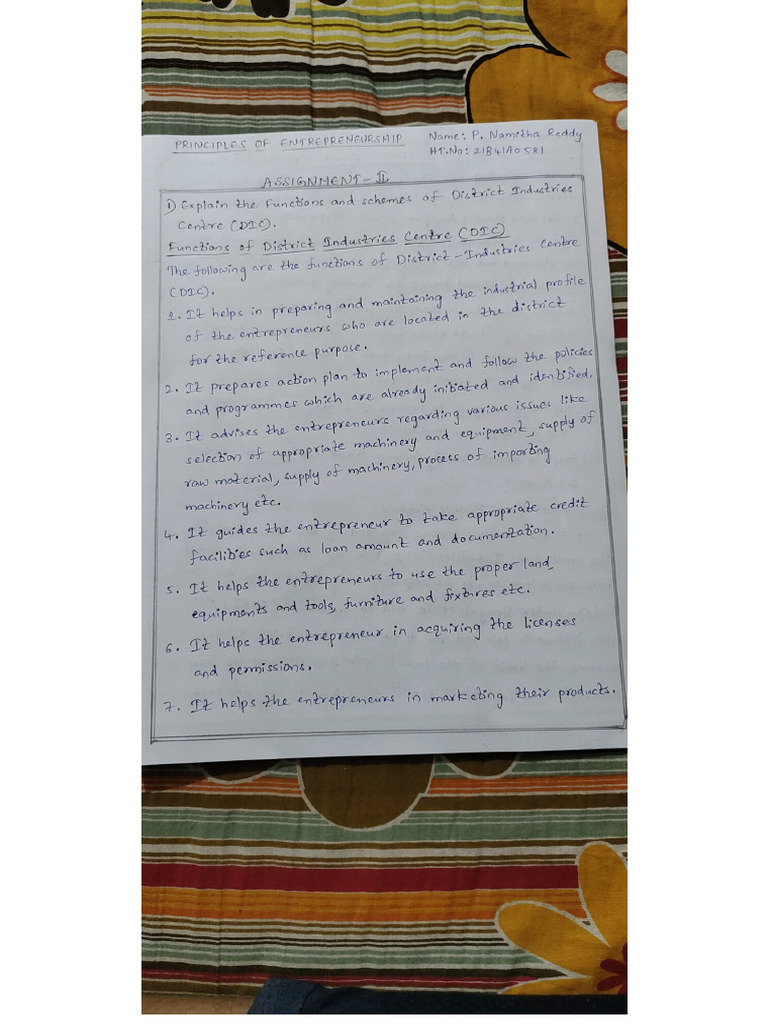 PRINCIPLES OF ENTREPRENEURSHIP Name: P. Namitha Reddy
HT.No: 21B41A0581
ASSIGNMENT-II
1) Explain the Functions and schemes of District Industries
Centre (DIC).
Functions of District Industries Centre (DIC)
The following are the functions of District-Industries Centre
(DIC).
1. It helps in preparing and maintaining the industrial profile
of the entrepreneurs who are located in the district
for the reference purpose.
2. It prepares action plan to implement and follow the policies
and programmes which are already initiated and identified.
3. It advises the entrepreneurs regarding various issues like
selection of appropriate machinery and equipment, supply of
raw material, supply of machinery, process of importing
machinery etc.
4. It guides the entrepreneur to take appropriate credit
facilities such as loan amount and documentation.
5. It helps the entrepreneurs to use the proper land,
equipments and tools, furniture and fixtures etc.
6. It helps the entrepreneur in acquiring the licenses
and permissions.
7. It helps the entrepreneurs in marketing their products.